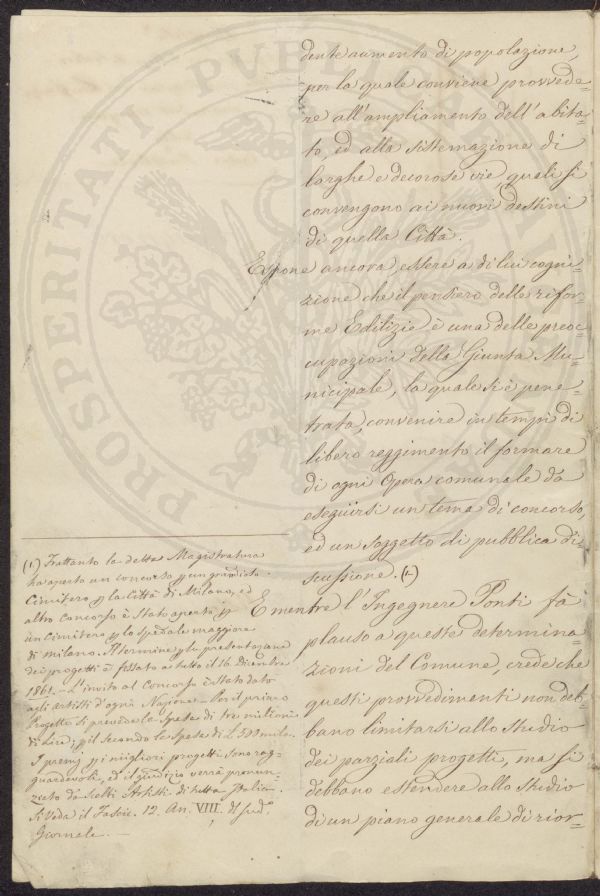 dente aumento di popolazione,
per la quale conviene provvede-
re all'ampliamento dell'abita-
to, ed alla sistemazione di
larghe e decorose vie, quali si
convengono ai nuovi destini
di quella Città.
Espone ancora, essere a di lui cogni-
zione che il pensiero delle rifor-
me Edilizie è una delle preoc-
cupazioni della Giunta Mu-
nicipale, la quale si è pene-
trata, convenire in tempi di
libero reggimento il formare
di ogni Opera comunale da
eseguirsi un tema di concorso,
ed un soggetto di pubblica di-
scussione. (1.)
E mentre l'Ingegnere Ponti fà
plauso a queste determina-
zioni del Comune, crede che
questi provvedimenti non deb-
bano limitarsi allo studio
dei parziali progetti, ma si
debbano estendere allo studio
di un piano generale di rior-
(1.) Frattanto la detta Magistratura
ha aperto un concorso p un grandioso
Cimitero p la Città di Milano, ed
altro Concorso è stato aperto p
un Cimitero p lo spedale maggiore
di Milano. Il termine p la presentazione
dei progetti è fissato a tutto il 16. Dicembre
1861. - L'invito al Concorso è stato dato
agli Artisti d'ogni Nazione. - Pel primo
Progetto si prevede la Spesa di tre milioni
di Lire; p il secondo la Spesa di L.
I premj p i migliori progetti sono rag-
guardevoli, ed il giudizio verrà pronun-
ziato da scelti Artisti di tutta Italia.
Si veda il Fascic. 12. An. VIII. di sud.o
Giornale. -
PROSPERITATI PVBLICAE